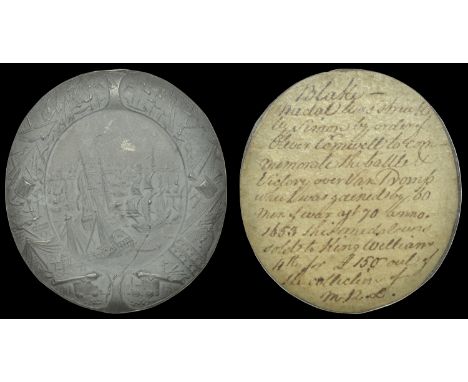 Blake —
Medal was struck
by Simon by order of
Oliver Cromwell to com
memorate the battle &
Victory over Van Tromp
which was gained by 60
Men of war agt 70 anno.
1653 this medal was
sold to King William
4th for £150 out of
the collection of